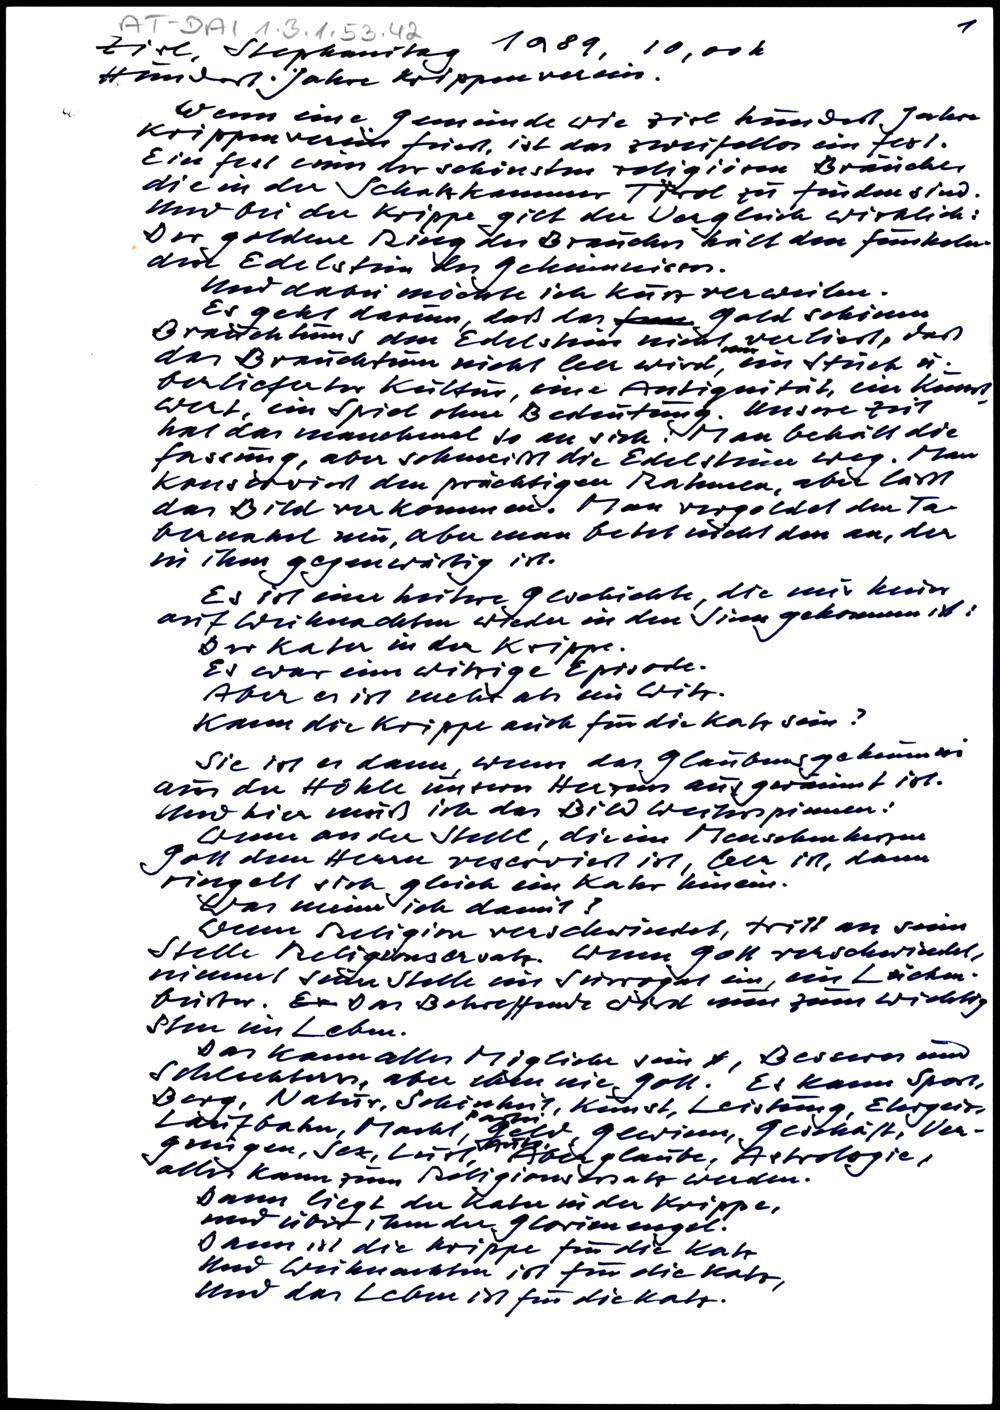 AT-DAI 1.3.1.53.42
1
Zirl, Stephanitag 1989, 10,00h
Hundert Jahre Krippenverein.
Wenn eine Gemeinde wie Zirl hundert Jahre
Krippenverein feiert, ist das zweifellos ein Fest.
Ein Fest eines der schönsten religiösen Bräuche
die in der Schatzkammer Tirol zu finden sind.
Und bei der Krippe gilt der Vergleich wirklich:
Der goldene Ring des Brauches hält den funkeln-
den Edelstein des Geheimnisses.
Und dabei möchte ich kurz verweilen.
Es geht darum, daß das Gold seines
Brauchtums den Edelstein nicht verliert, daß
das Brauchtum nicht leer wird, ein Stück ü-
berlieferter Kultur, eine Antiquität, ein Kunst-
wert, ein Spiel ohne Bedeutung. Unsere Zeit
hat das manchmal so an sich: Man behält die
Fassung, aber schmeißt die Edelsteine weg. Man
konserviert den prächtigen Rahmen, aber läßt
das Bild verkommen. Man vergoldet den Ta-
bernakel neu, aber man betet nicht den an, der
in ihm gegenwärtig ist.
Es ist eine heitere Geschichte, die mir heuer
auf Weihnachten wieder in den Sinn gekommen ist:
Der Kater in der Krippe.
Es war eine witzige Episode.
Aber es ist mehr als ein Witz.
Kann die Krippe auch für die Katz sein?
Sie ist es dann, wenn das Glaubensgeheimnis
aus der Höhle unseres Herzens ausgeräumt ist.
Und hier muß ich das Bild weiterspinnen:
Wenn an der Stelle, die im Menschenherzen
Gott dem Herrn reserviert ist, leer ist, dann
ringelt sich gleich ein Kater hinein.
Was meine ich damit?
Wenn Religion verschwindet, tritt an seine
Stelle Religionsersatz. Wenn Gott verschwindet,
nimmt seine Stelle ein Surrogat ein, ein Lücken-
büßer. Das Betreffende wird nun zum wichtig-
sten im Leben.
Das kann alles Mögliche sein, Besseres und
Schlechteres, aber eben nie Gott. Es kann Sport,
Berg, Natur, Schönheit, Kunst, Leistung, Ehrgeiz,
Laufbahn, Macht, Partei, Geld, Gewinn, Geschäft, Ver-
gnügen, Sex, Lust, Aberglaube, Astrologie,
alles kann zum Religionsersatz werden.
Dann liegt der Kater in der Krippe,
und über ihm der Glorienengel.
Dann ist die Krippe für die Katz
Und Weihnachten ist für die Katz,
Und das Leben ist für die Katz.